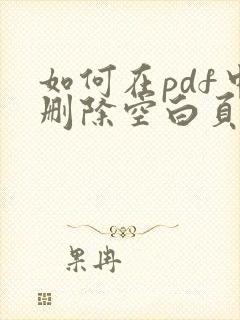 如何在pdf中
删除空白页
果冉